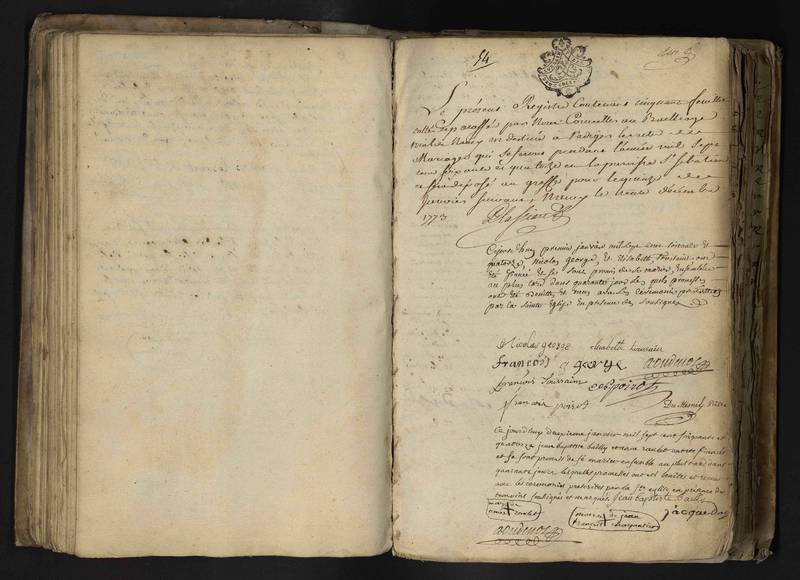 54
Le présent Registre Contenant cinquante feuillets
cotté et paraffé par Nous Conseiller au Bailliage
de Nancy et destiné à rediger les actes des
Mariages qui se feront pendant l'année mil sept
cent soixante et quatorze en la paroisse St Sebastien
déposé au greffe pour le quinze
Janvier suivant, Nancy le trente décembre
1773
Cejourdhuy premier janvier mil sept cent soixante et
quatorze, Nicolas george, & Elisabeth toussaint ont
été fiancé & se sont promis de se marier, ensemble
au plus tard dans quarante jours les quels promesses
ont été & avec les ceremonies prescrittes
par la sainte Eglise en presence des soussignés
Nicolas george elisabeth toussaint
françois george
françois toussaint poirot
françois poirot Du Mesnil
Ce jourdhuy deuxieme janvier mil sept cent soixante et
quatorze jean baptiste bailly et anne raulot ont été fiancés
et se sont promis de se marier ensemble au plus tard dans
quarante jours les quelles promesses ont été benites et
avec les ceremonies prescrites par la Ste eglise en presence des
temoins soussignés et marqués. Jean baptiste bailly
marque de jacque
anne raulot marque de jean
françois charpentier